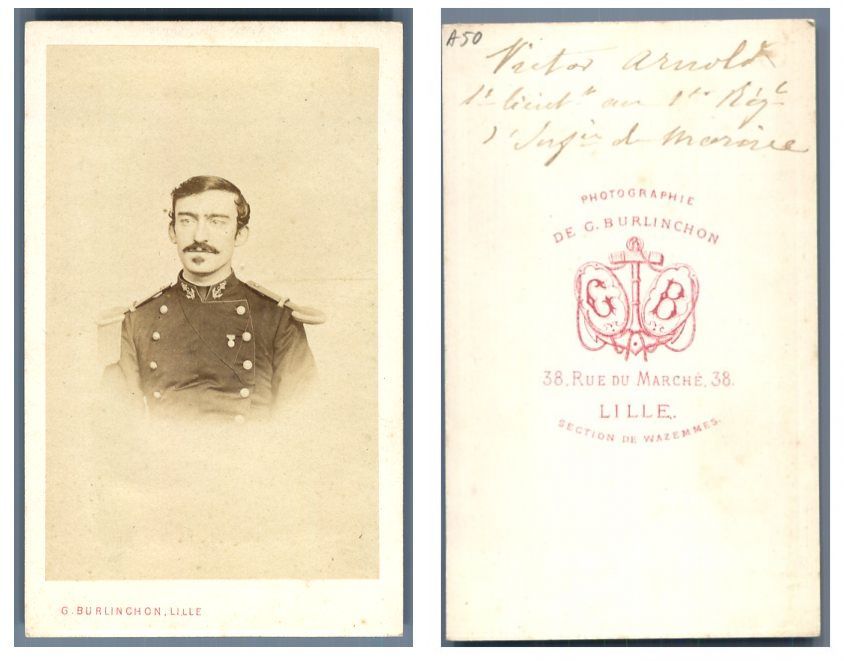 G. BURLINCHON, LILLE
A50
Victor Arnold
lieut au 1er Rég
d'Infie de Marine
PHOTOGRAPHIE
DE G. BURLINCHON
G B
38, RUE DU MARCHÉ, 38.
LILLE.
SECTION DE WAZEMMES.